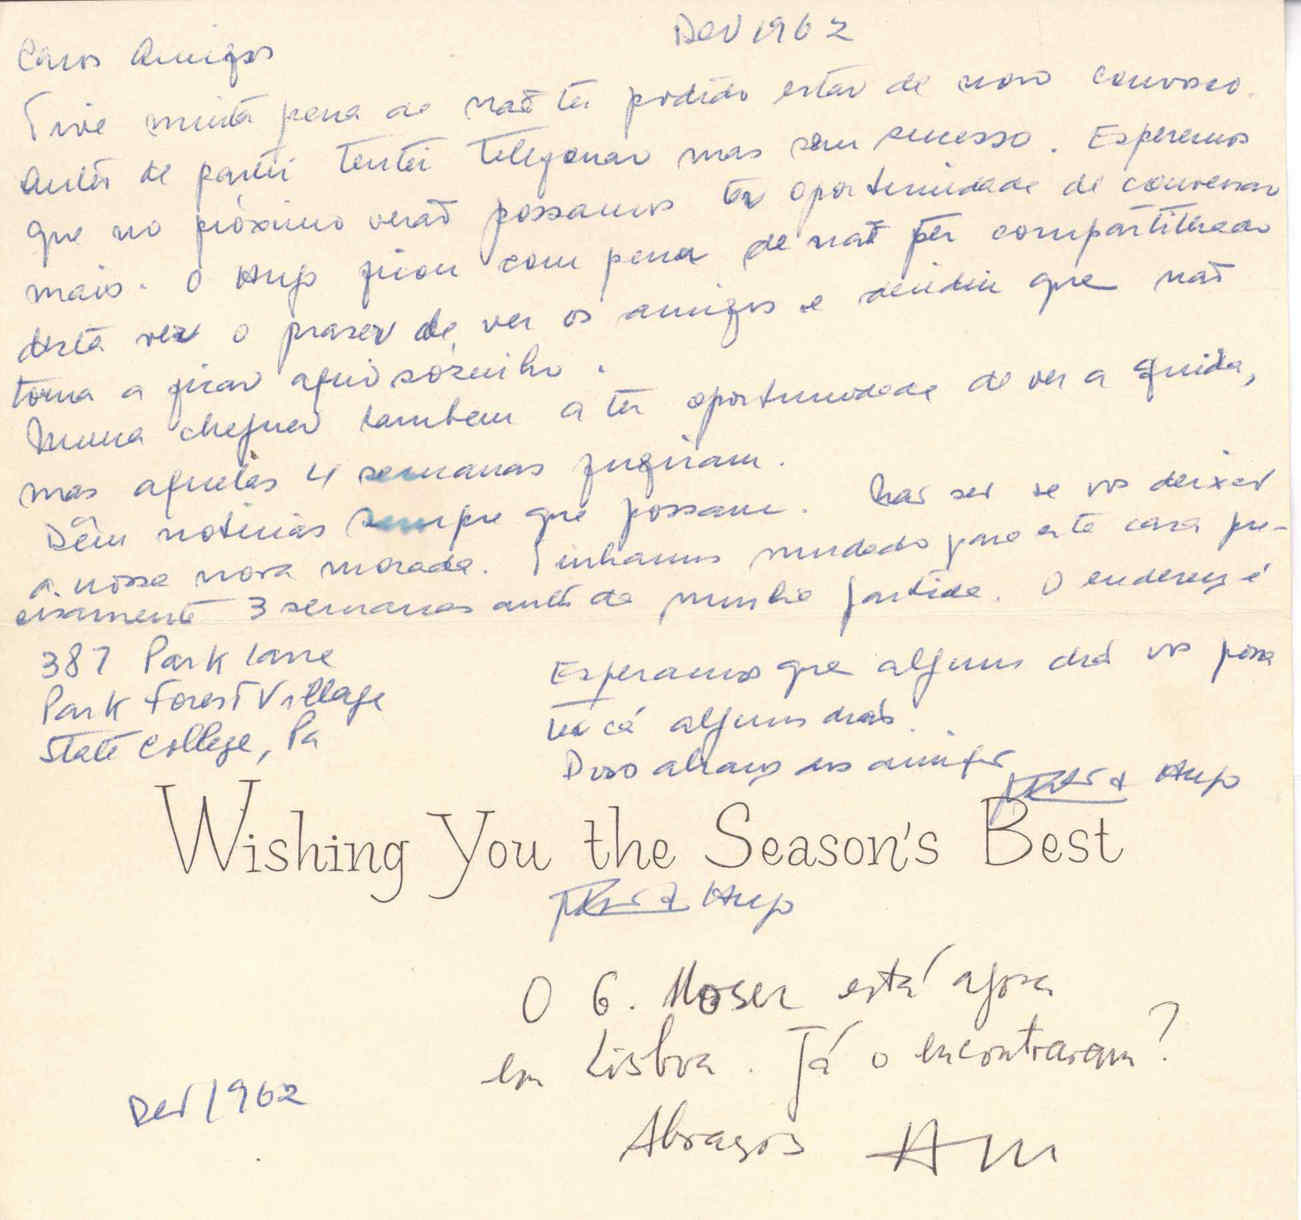 Dez 1962
Caros Amigos
Tive muita pena de não ter podido estar de novo convosco.
Antes de partir tentei telefonar mas sem sucesso. Esperemos
que no próximo verão possamos ter oportunidade de conversar
mais. O Hugo ficou com pena de não ter compartilhado
desta vez o praser de ver os amigos e decidiu que não
torna a ficar aqui sózinho.
Nunca cheguei tambem a ter oportunidade de ver a Guida,
mas aquelas 4 semanas fugiram.
Dêm noticias sempre que possam. Não sei se vos deixei
a nossa nova morada. Tinhamos mudado para esta casa pre-
cisamente 3 semanas antes da minha partida. O endereço é
387 Park Lane
Park Forest Village
State College, Pa
Esperamos que algum dia vos possa
ter cá alguns dias.
Duso abraço dos amigos
& Hugo
Wishing You the Season's Best
& Hugo
O G. Moser está agora
em Lisboa. Já o encontraram?
Abraços
Dez 1962